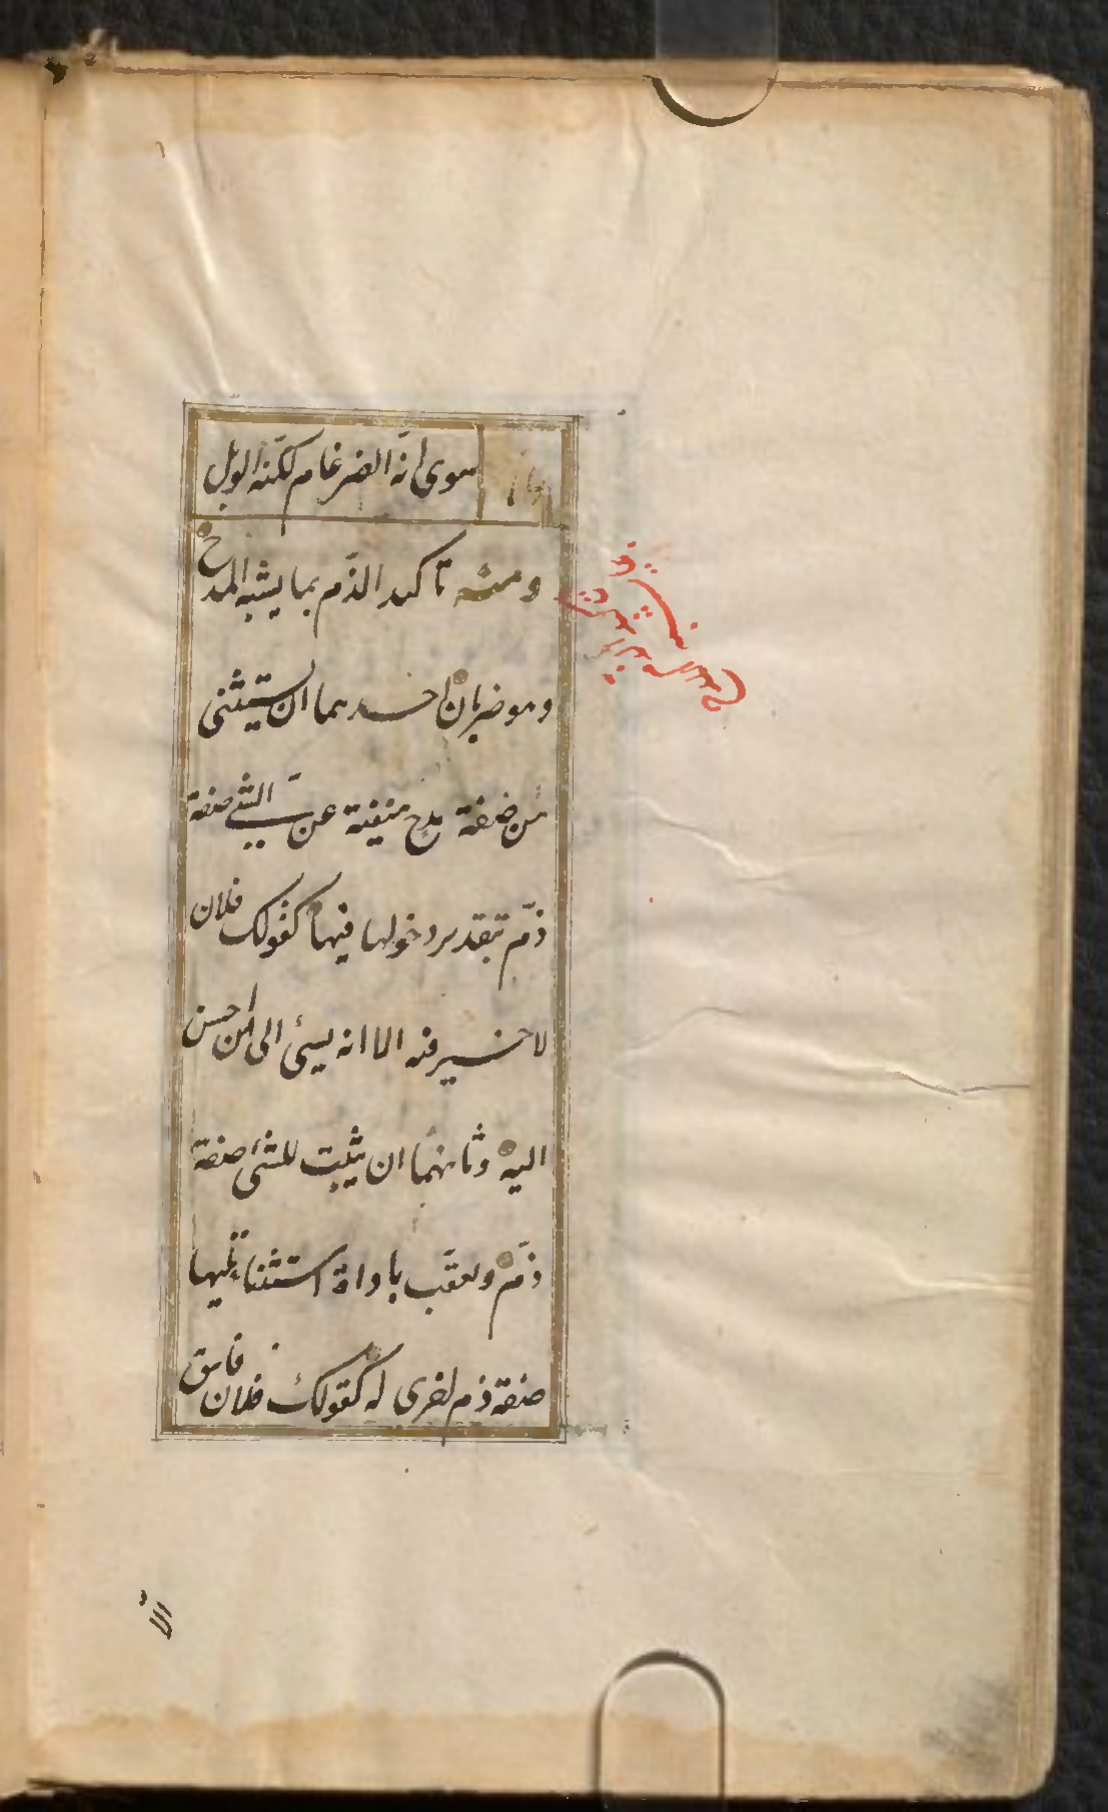 سوى انّه الضرغام لكنّه الوبل
ومنه تاكيد الذّم بما يشبه المدح
وهو ضربان احدهما ان يستثنى
من صفة مدح منفية عن الشئ صفة
ذمّ بتقدير دخولها فيها كقولك فلان
لا خير فيه الا انه يسئ الى من احسن
اليه وثانيهما ان يثبت للشئ صفة
ذمّ ويعقّب باداة استثنا تليها
صفة ذم اخرى له كقولك فلان فاسق
الا